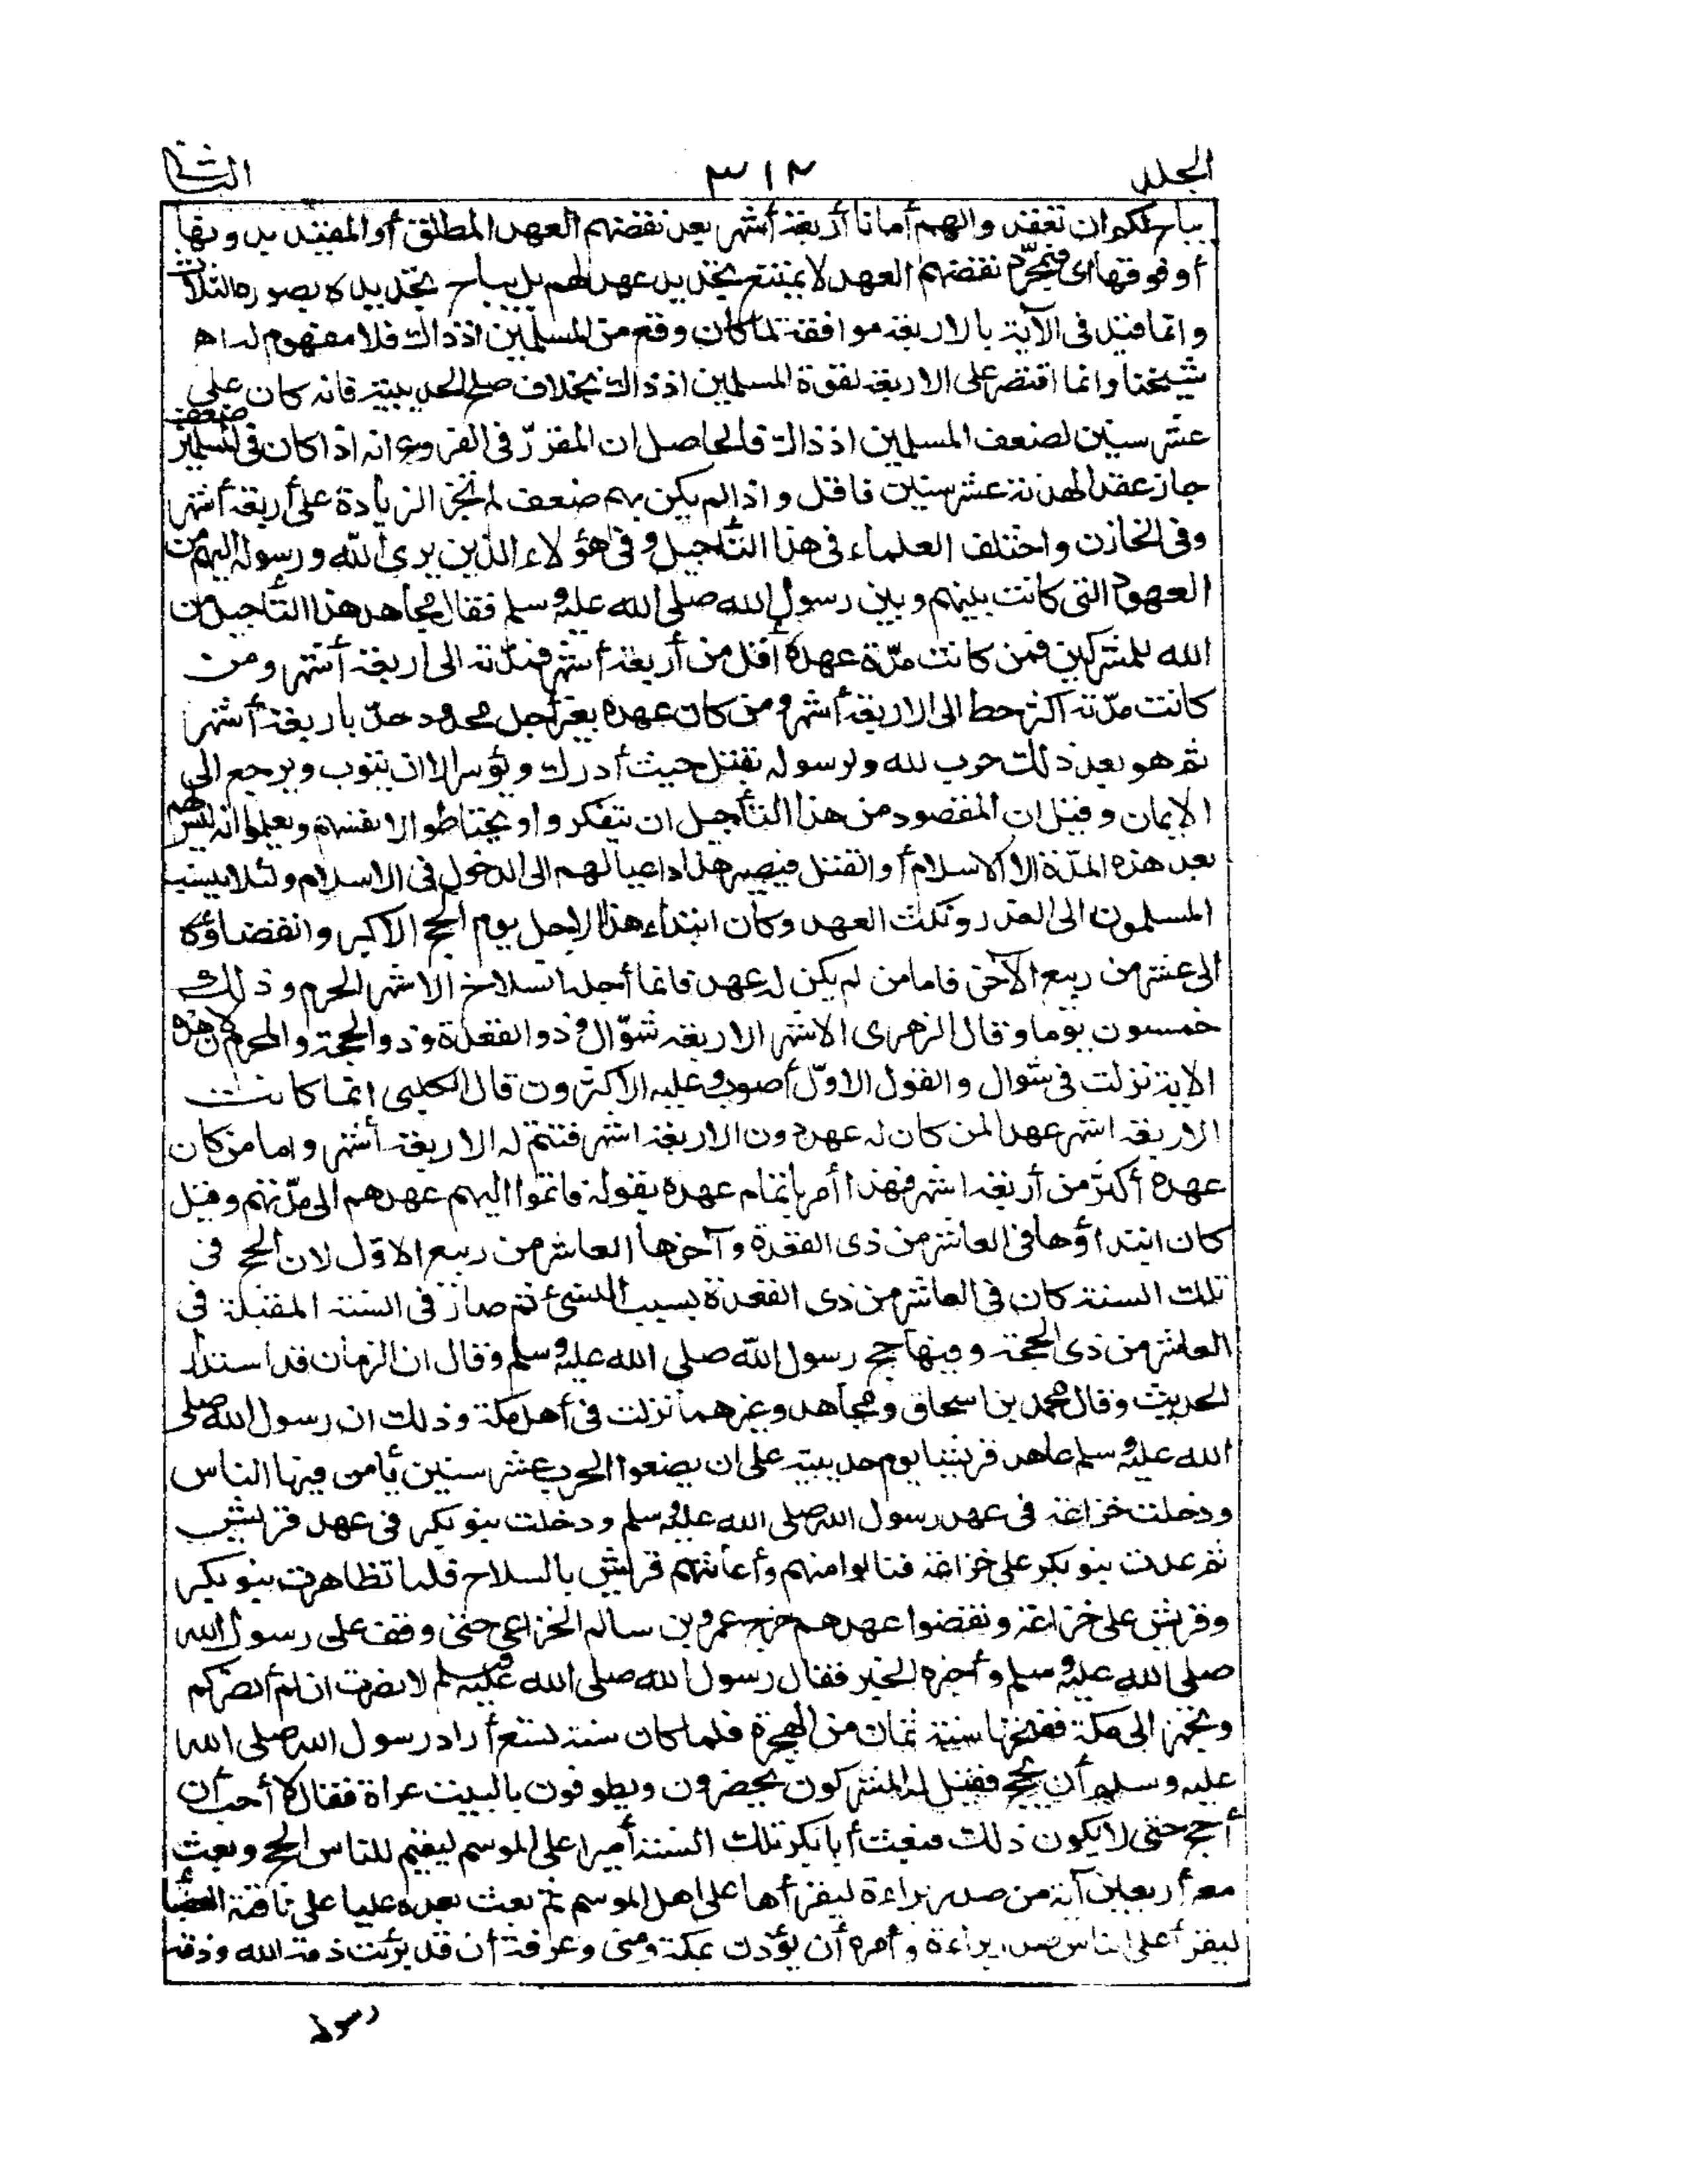 الجلد ٣١٢ الثانى
يباح لكم ان تعقدوا لهم أمانا أربعة أشهر بعد نقضهم العهد المطلق أو المقيد بدونها
أو فوقها اى فمجرّد نقضهم العهد لا يمتنع تجديد عهد لهم بل يباح تجديده بصوره الثلاث
وانما قيد فى الآية بالاربعة موافقة لما كان وقع من المسلمين اذ ذاك فلا مفهوم له اه
شيخنا وانما اقتصر على الاربعة لقوة المسلمين اذ ذاك بخلاف صلح الحديبية فانه كان على
عشر سنين لضعف المسلمين اذ ذاك فالحاصل ان المقرّر فى الفروع انه اذا كان فى المسلمين ضعف
جاز عقد الهدنة عشر سنين فاقل واذا لم يكن بهم ضعف لم تجز الزيادة على أربعة أشهر
وفى الخازن واختلف العلماء فى هذا التأجيل وفى هؤلاء الذين برئ الله ورسوله اليهم من
العهود التى كانت بينهم وبين رسول الله صلى الله عليه وسلم فقال مجاهد هذا التأجيل من
الله للمشركين فمن كانت مدّة عهده أقل من أربعة أشهر فمدّته الى أربعة أشهر ومن
كانت مدّته أكثر حط الى الاربعة أشهر ومن كان عهده بغير أجل محدود حدّ باربعة أشهر
ثم هو بعد ذلك حرب لله ولرسوله يقتل حيث أدرك ويؤسر الا ان يتوب ويرجع الى
الايمان وقيل ان المقصود من هذا التأجيل ان يتفكروا ويحتاطوا لانفسهم ويعلموا انه ليس لهم
بعد هذه المدّة الا الاسلام أو القتل فيصير هذا داعيا لهم الى الدخول فى الاسلام ولئلا ينسب
المسلمون الى الغدر ونكث العهد وكان ابتداء هذا الاجل يوم الحج الاكبر وانقضاؤه
الى عشر من ربيع الآخر فاما من لم يكن له عهد فانما أجله انسلاخ الاشهر الحرم وذلك
خمسون يوما وقال الزهرى الاشهر الاربعة شوّال وذو القعدة وذو الحجة والمحرم لان هذه
الاية نزلت فى شوال والقول الاوّل أصوب وعليه الاكثرون قال الكلبى انما كانت
الاربعة اشهر عهدا لمن كان له عهد دون الاربعة اشهر فتتم له الاربعة أشهر واما من كان
عهده أكثر من أربعة اشهر فهذا أمر باتمام عهده بقوله فاتموا اليهم عهدهم الى مدّتهم وقيل
كان ابتداؤها فى العاشر من ذى القعدة وآخرها العاشر من ربيع الاوّل لان الحج فى
تلك السنة كان فى العاشر من ذى القعدة بسبب النسئ ثم صار فى السنة المقبلة فى
العاشر من ذى الحجة وفيها حج رسول الله صلى الله عليه وسلم وقال ان الزمان قد استدار
الحديث وقال محمد بن اسحاق ومجاهد وغيرهما نزلت فى أهل مكة وذلك ان رسول الله صلى
الله عليه وسلم عاهد قريشا يوم حديبية على ان يضعوا الحرب عشر سنين يأمن فيها الناس
ودخلت خزاعة فى عهد رسول الله صلى الله عليه وسلم ودخلت بنو بكر فى عهد قريش
ثم عدت بنو بكر على خزاعة فنالوا منهم وأعانتهم قريش بالسلاح فلما تظاهرت بنو بكر
وقريش على خزاعة ونقضوا عهدهم خرج عمرو بن سالم الخزاعى حتى وقف على رسول الله
صلى الله عليه وسلم وأخبره الخبر فقال رسول الله صلى الله عليه وسلم لا نصرت ان لم أنصركم
وتجهز الى مكة ففتحها سنة ثمان من الهجرة فلما كان سنة تسع أراد رسول الله صلى الله
عليه وسلم أن يحج فقيل له المشركون يحضرون ويطوفون بالبيت عراة فقال لا أحب أن
أحج حتى لا يكون ذلك فبعث أبا بكر تلك السنة أميرا على الموسم ليقيم للناس الحج وبعث
معه أربعين آية من صدر براءة ليقرأها على اهل الموسم ثم بعث بعده عليا على ناقته العضبا
ليقرأ على الناس صدر براءة وأمره أن يؤذن بمكة ومنى وعرفة أن قد برئت ذمة الله وذمة
رسوله